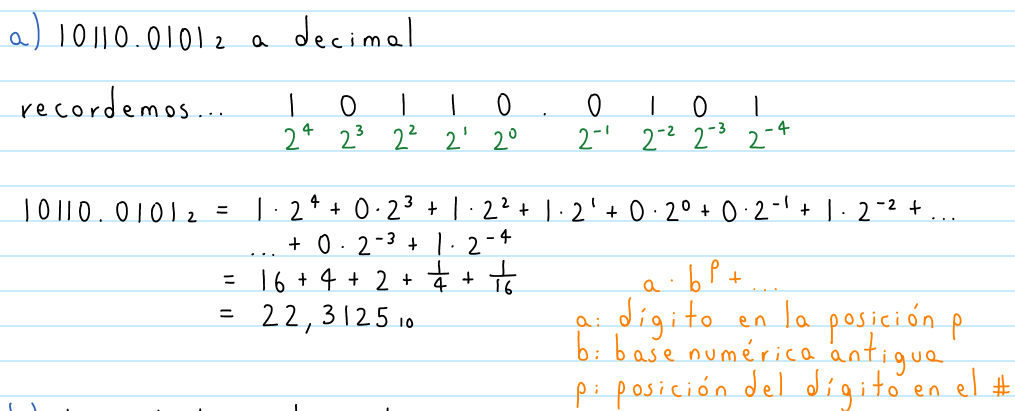 a) 10110.0101₂ a decimal
recordemos... 1 0 1 1 0 . 0 1 0 1
2⁴ 2³ 2² 2¹ 2⁰ 2⁻¹ 2⁻² 2⁻³ 2⁻⁴
10110.0101₂ = 1·2⁴ + 0·2³ + 1·2² + 1·2¹ + 0·2⁰ + 0·2⁻¹ + 1·2⁻² + ...
... + 0·2⁻³ + 1·2⁻⁴
= 16 + 4 + 2 + 1/4 + 1/16
= 22,3125₁₀
a·bᵖ + ...
a: dígito en la posición p
b: base numérica antigua
p: posición del dígito en el #